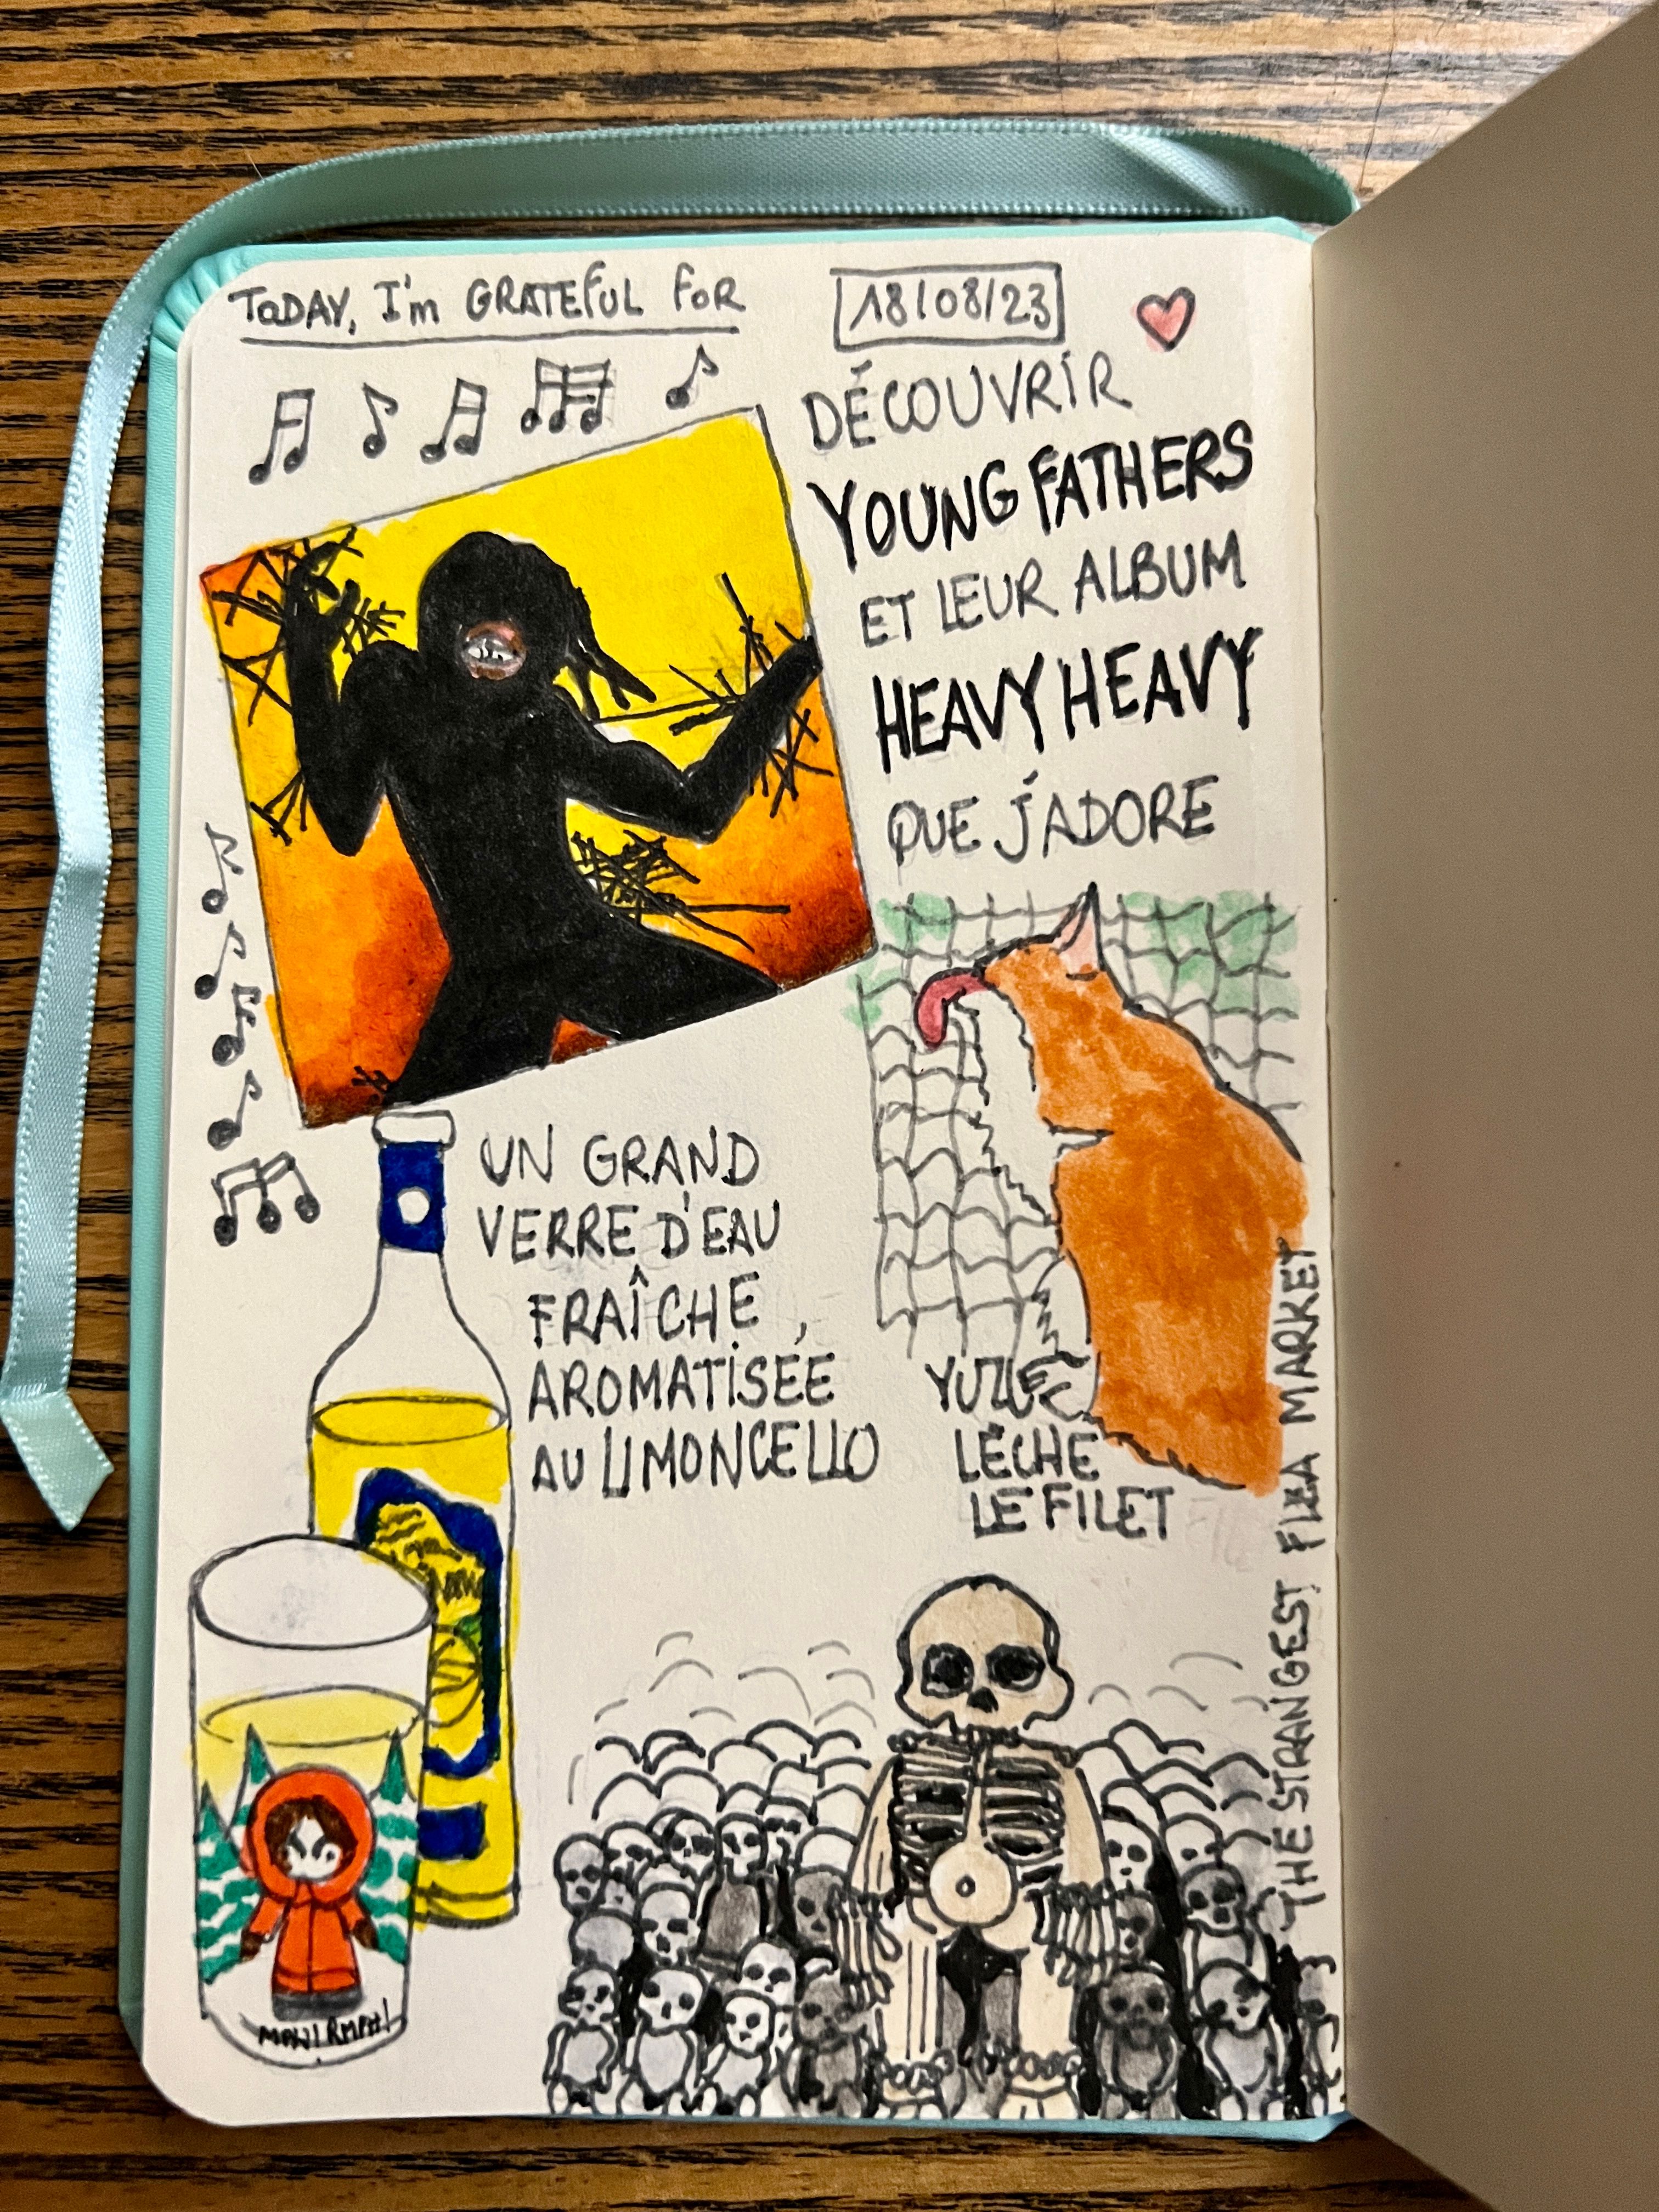 TODAY, I'm GRATEFUL FOR
18/08/23
DÉCOUVRIR
YOUNG FATHERS
ET LEUR ALBUM
HEAVY HEAVY
QUE J'ADORE
UN GRAND
VERRE D'EAU
FRAÎCHE,
AROMATISÉE
AU LIMONCELLO
LÈCHE
LE FILET
THE STRANGEST FLEA MARKET